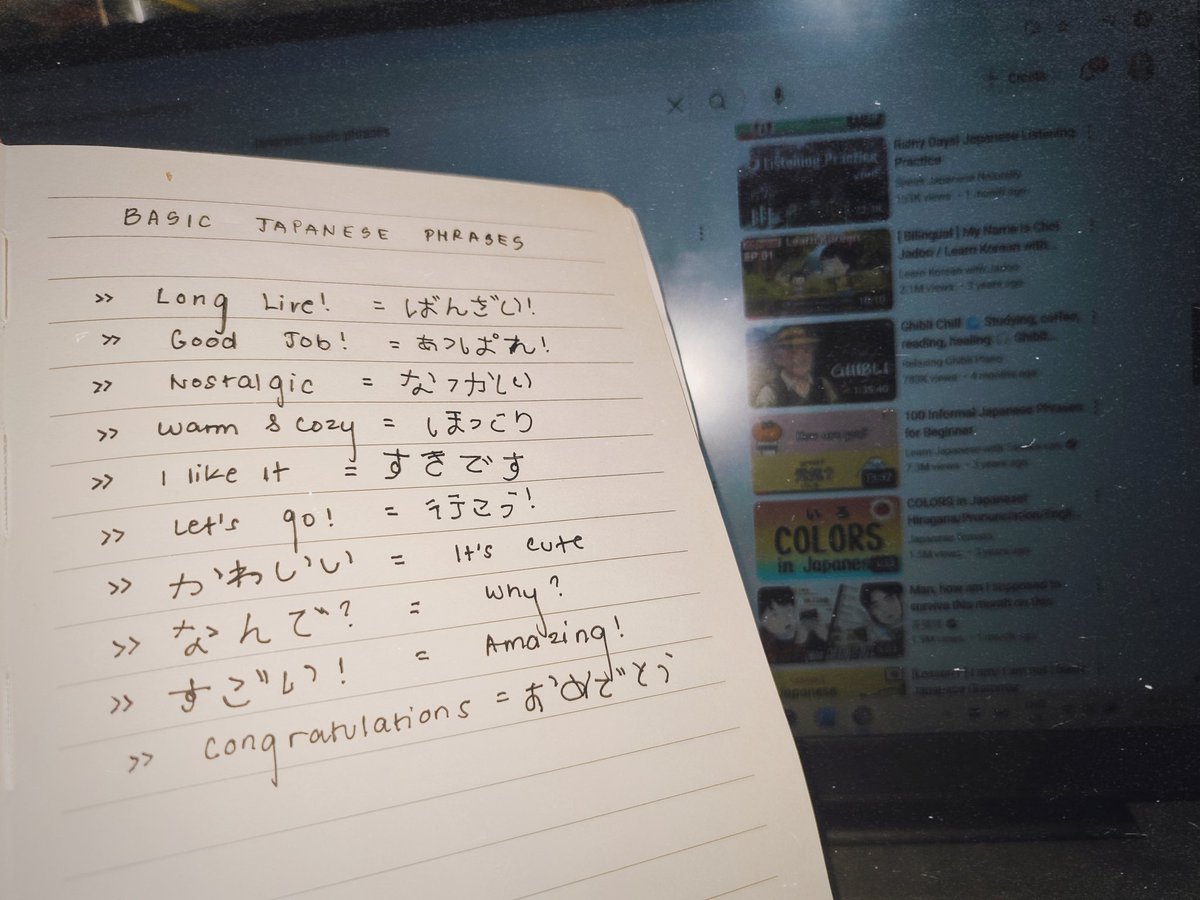 BASIC JAPANESE PHRASES
>> Long Live! = ばんざい!
>> Good Job! = あっぱれ!
>> Nostalgic = なつかしい
>> Warm & Cozy = ほっこり
>> I like It = すきです
>> Let's go! = 行こう!
>> かわいい = It's cute
>> なんで? = Why?
>> すごい! = Amazing!
>> Congratulations = おめでとう
Create
Rainy Days! Japanese Listening
Practice
Listening Practice
1 month ago
[Bilingual] My Name is Chei
Jadoo / Learn Korean with...
EP.01
Learn Korean with Jadoo
2.1M views • 3 years ago
Ghibli Chill Studying, coffee,
reading, healing Ghibli...
GHIBLI
Relaxing Ghibli Piano
4 months ago
1:35:40
100 Informal Japanese Phrases
for Beginner
7.3M views • 3 years ago
COLORS in Japanese!
Hiragana/Pronunciation/Engli...
いろ
COLORS
in Japanese
Man, how am I supposed to
survive this month on this
Japanese